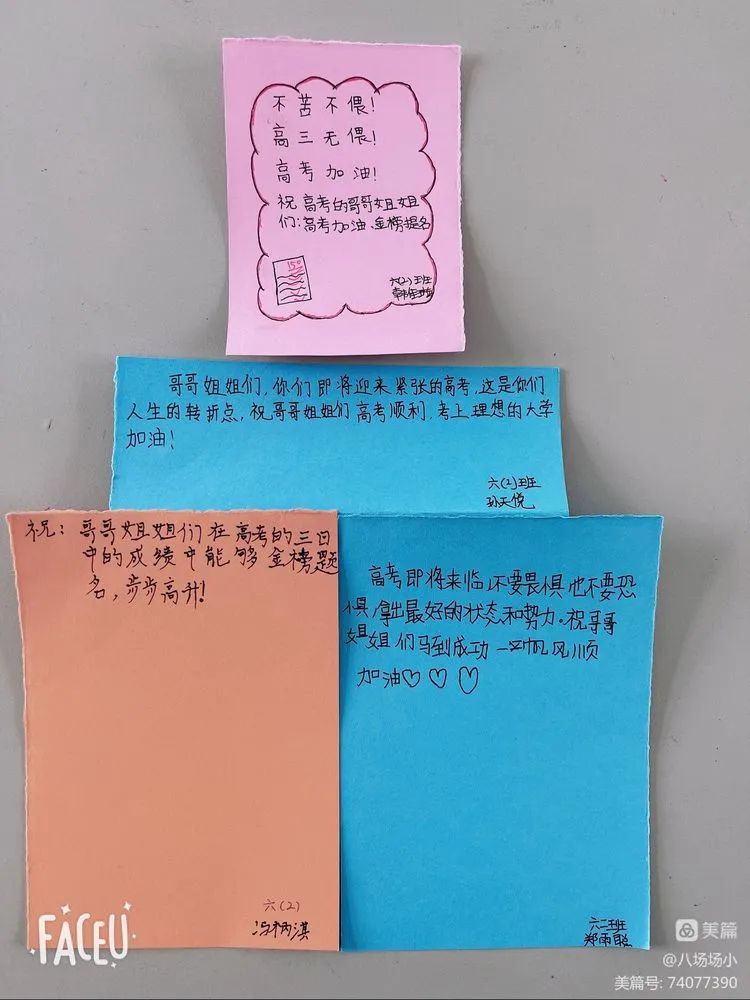 不苦不偎！
高三无偎！
高考加油！
祝高考的哥哥姐姐
们：高考加油、金榜提名
15°
六(2)班
哥哥姐姐们，你们即将迎来紧张的高考，这是你们
人生的转折点，祝哥哥姐姐们高考顺利，考上理想的大学
加油！
六(2)班
孙天悦
祝：哥哥姐姐们在高考的三日
中的成绩中能够金榜题
名，步步高升！
六(2)
冯炳淇
高考即将来临，不要畏惧，也不要恐
惧，拿出最好的状态和势力。祝哥哥
姐姐们马到成功 一帆风顺
加油♡♡♡
六二班
郑雨聪
FACEU
美篇
@八场场小
美篇号: 74077390